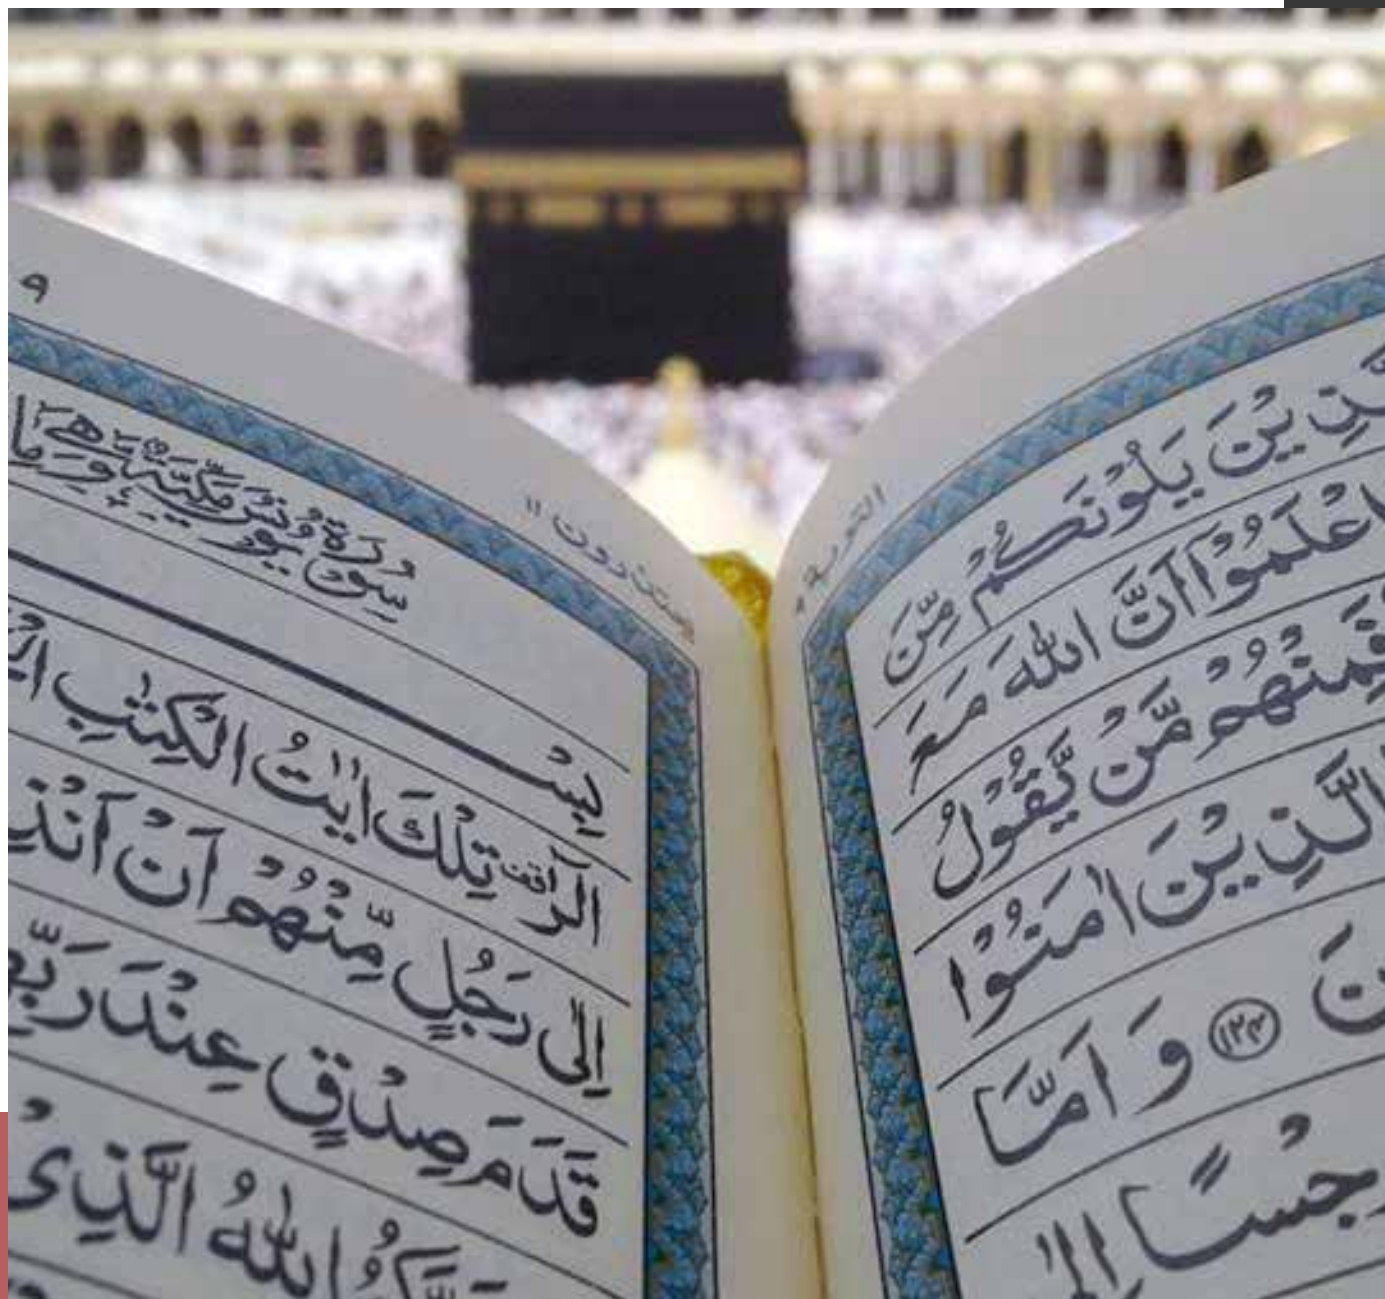 التوبة ٩
يَلُوْنَكُمْ مِّنَ
اعْلَمُوْۤا اَنَّ اللّٰهَ مَعَ
فَمِنْهُمْ مَّنْ يَّقُوْلُ
الَّذِيْنَ اٰمَنُوْا
﴿۱۲۴﴾ وَ اَمَّا
رِجْسًا اِلٰى
يعتذرون ۱۱
٩
سُوْرَةُ يُوْنُسَ مَكِّيَّةٌ وَّهِيَ
بِسْ
الٓرٰ تِلْكَ اٰيٰتُ الْكِتٰبِ
اِلٰى رَجُلٍ مِّنْهُمْ اَنْ اَنْذِ
قَدَمَ صِدْقٍ عِنْدَ رَبِّهِ
اللّٰهُ الَّذِىْ